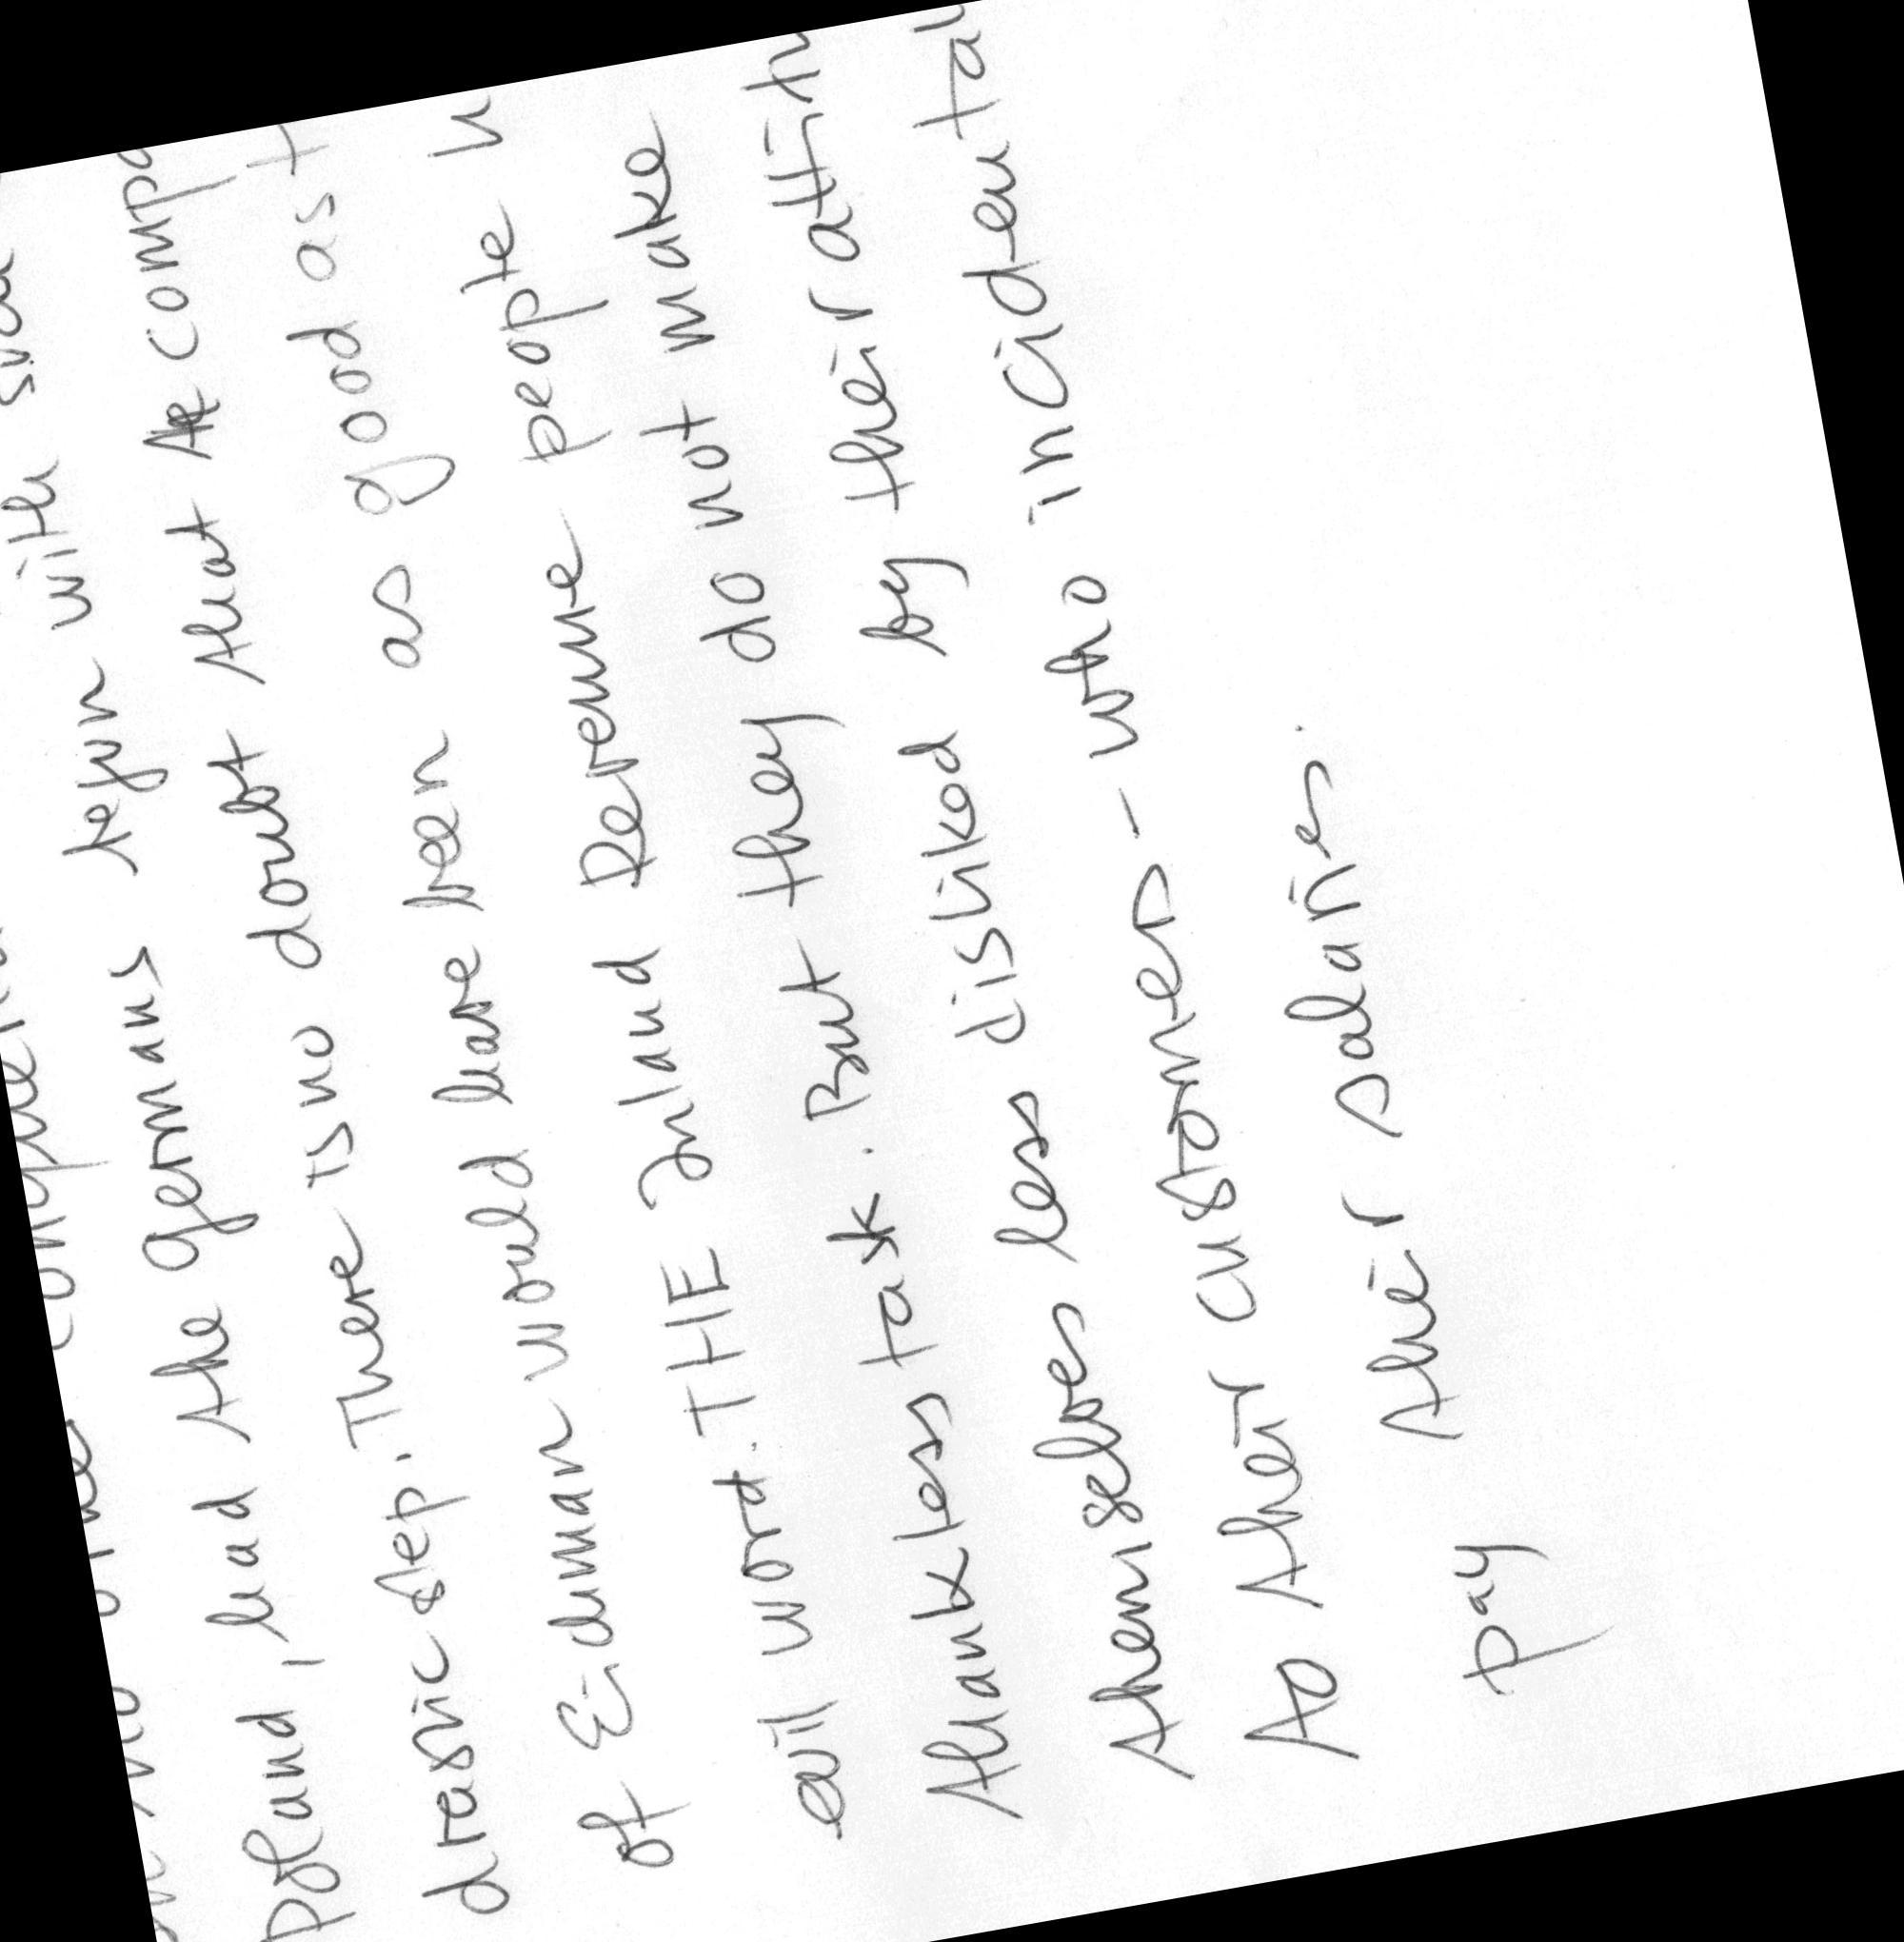 begin with
pland, had the germans
drastic step. There is no doubt that compa
of Eiduman would have been as good as t
evil word. THE Inland Revenue people w
thankless task. But they do not make
themselves less disliked by their attit
to their customers - who incidental
pay their salaries.